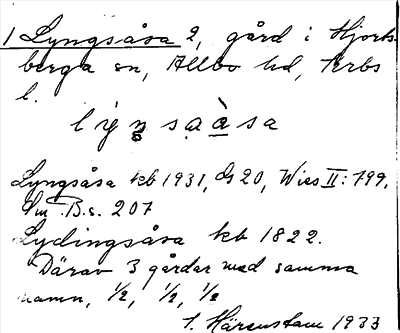 1 Lyngsåsa 2, gård i Hjorts-
berga sn, Allbo hd, Krbs
l.
Lyngsåsa kb 1931, Gs 20, Wies II: 799,
Sm B.s. 207
Lydingsåsa kb 1822.
Därav 3 gårdar med samma
namn, 1/2, 1/2, 1/2
S. Härenstam 1933